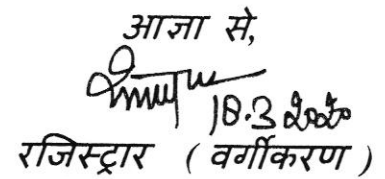 आज्ञा से,
18.3.2020
रजिस्ट्रार ( वर्गीकरण )